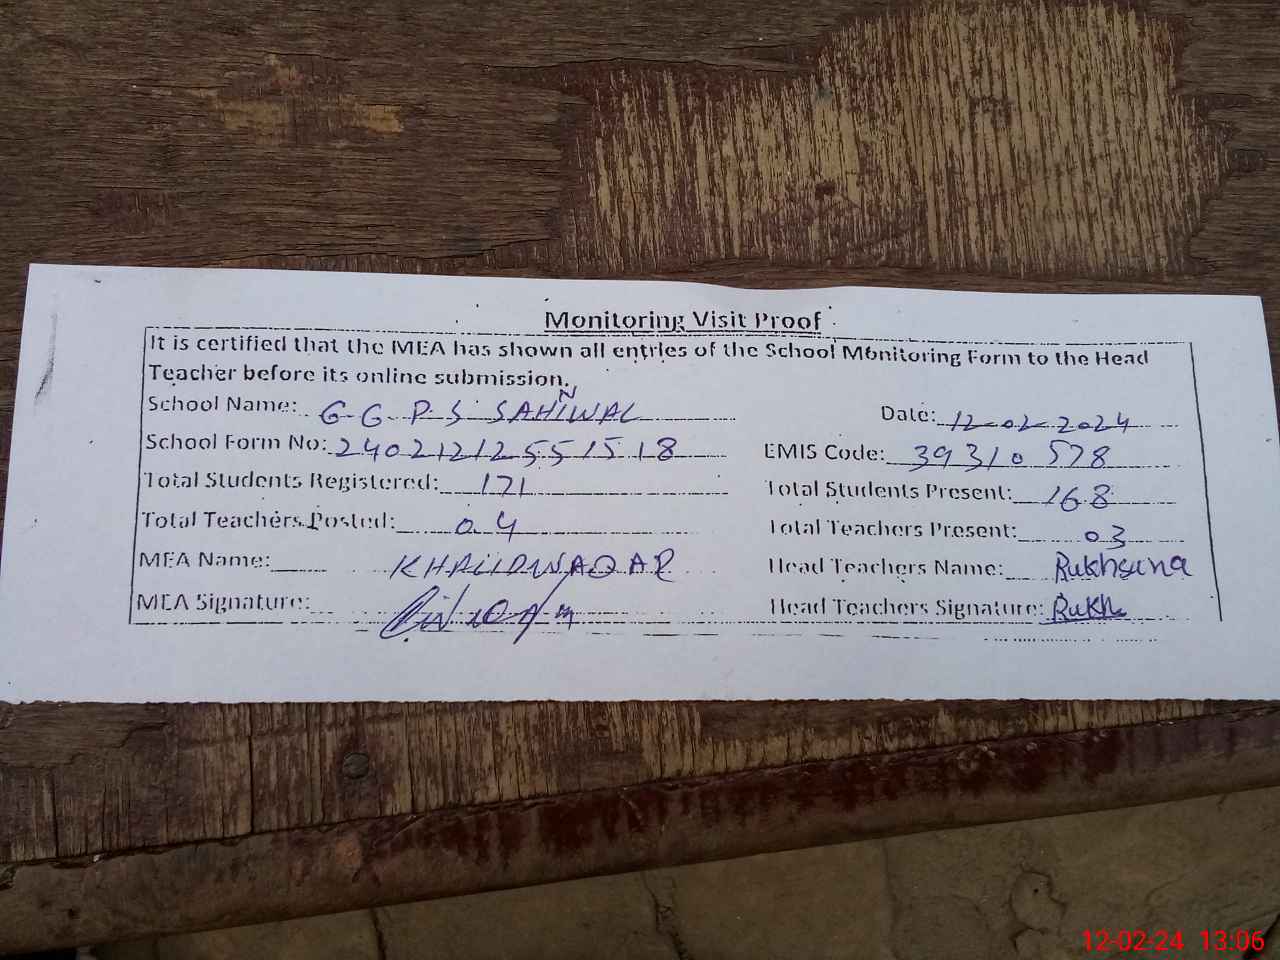 Monitoring Visit Proof
It is certified that the MEA has shown all entries of the School Monitoring Form to the Head
Teacher before its online submission.
School Name: G G P S SAHNIWAL Date: 12-02-2024
School Form No: 24021212551518 EMIS Code: 39310578
Total Students Registered: 171 Total Students Present: 168
Total Teachers Posted: 04 Total Teachers Present: 03
MEA Name: KHALIDWAQAR Head Teachers Name: Rukhsana
MEA Signature: Head Teachers Signature: Rukh
12-02-24 13:06